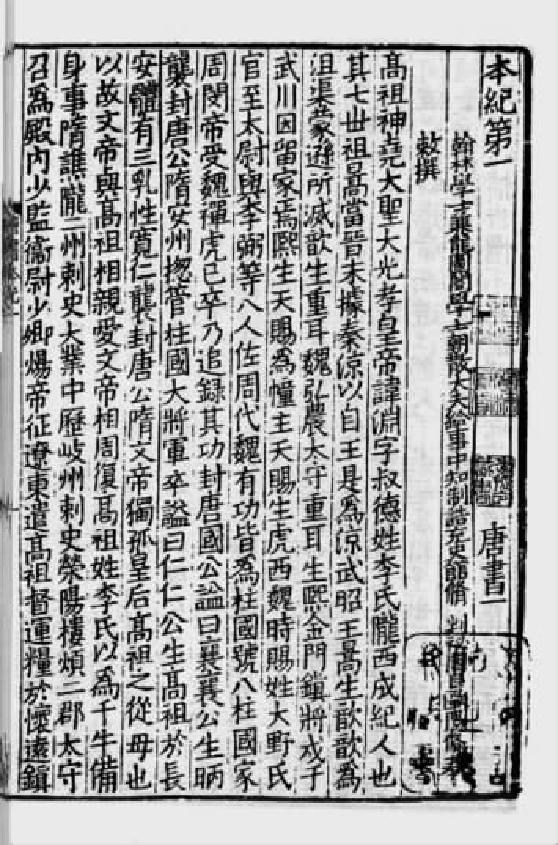 本紀第一　唐書一
翰林學士兼龍圖閣學士朝散大夫給事中知制誥充史館脩
敕撰
高祖神堯大聖大光孝皇帝諱淵字叔德姓李氏隴西成紀人也
其七世祖暠當晉末據秦涼以自王是爲涼武昭王暠生歆歆爲
沮渠蒙遜所滅歆生重耳魏弘農太守重耳生熙金門鎮將戍于
武川因留家焉熙生天賜爲幢主天賜生虎西魏時賜姓大野氏
官至太尉與李弼等八人佐周代魏有功皆爲柱國號八柱國家
周閔帝受魏禪虎已卒乃追錄其功封唐國公謚曰襄襄公生昞
襲封唐公隋安州揔管柱國大將軍卒謚曰仁仁公生高祖於長
安體有三乳性寬仁襲封唐公隋文帝獨孤皇后高祖之從母也
以故文帝與高祖相親愛文帝相周復高祖姓李氏以爲千牛備
身事隋譙隴二州刺史大業中歷岐州刺史滎陽樓煩二郡太守
召爲殿內少監衞尉少卿煬帝征遼東遣高祖督運糧於懷遠鎮